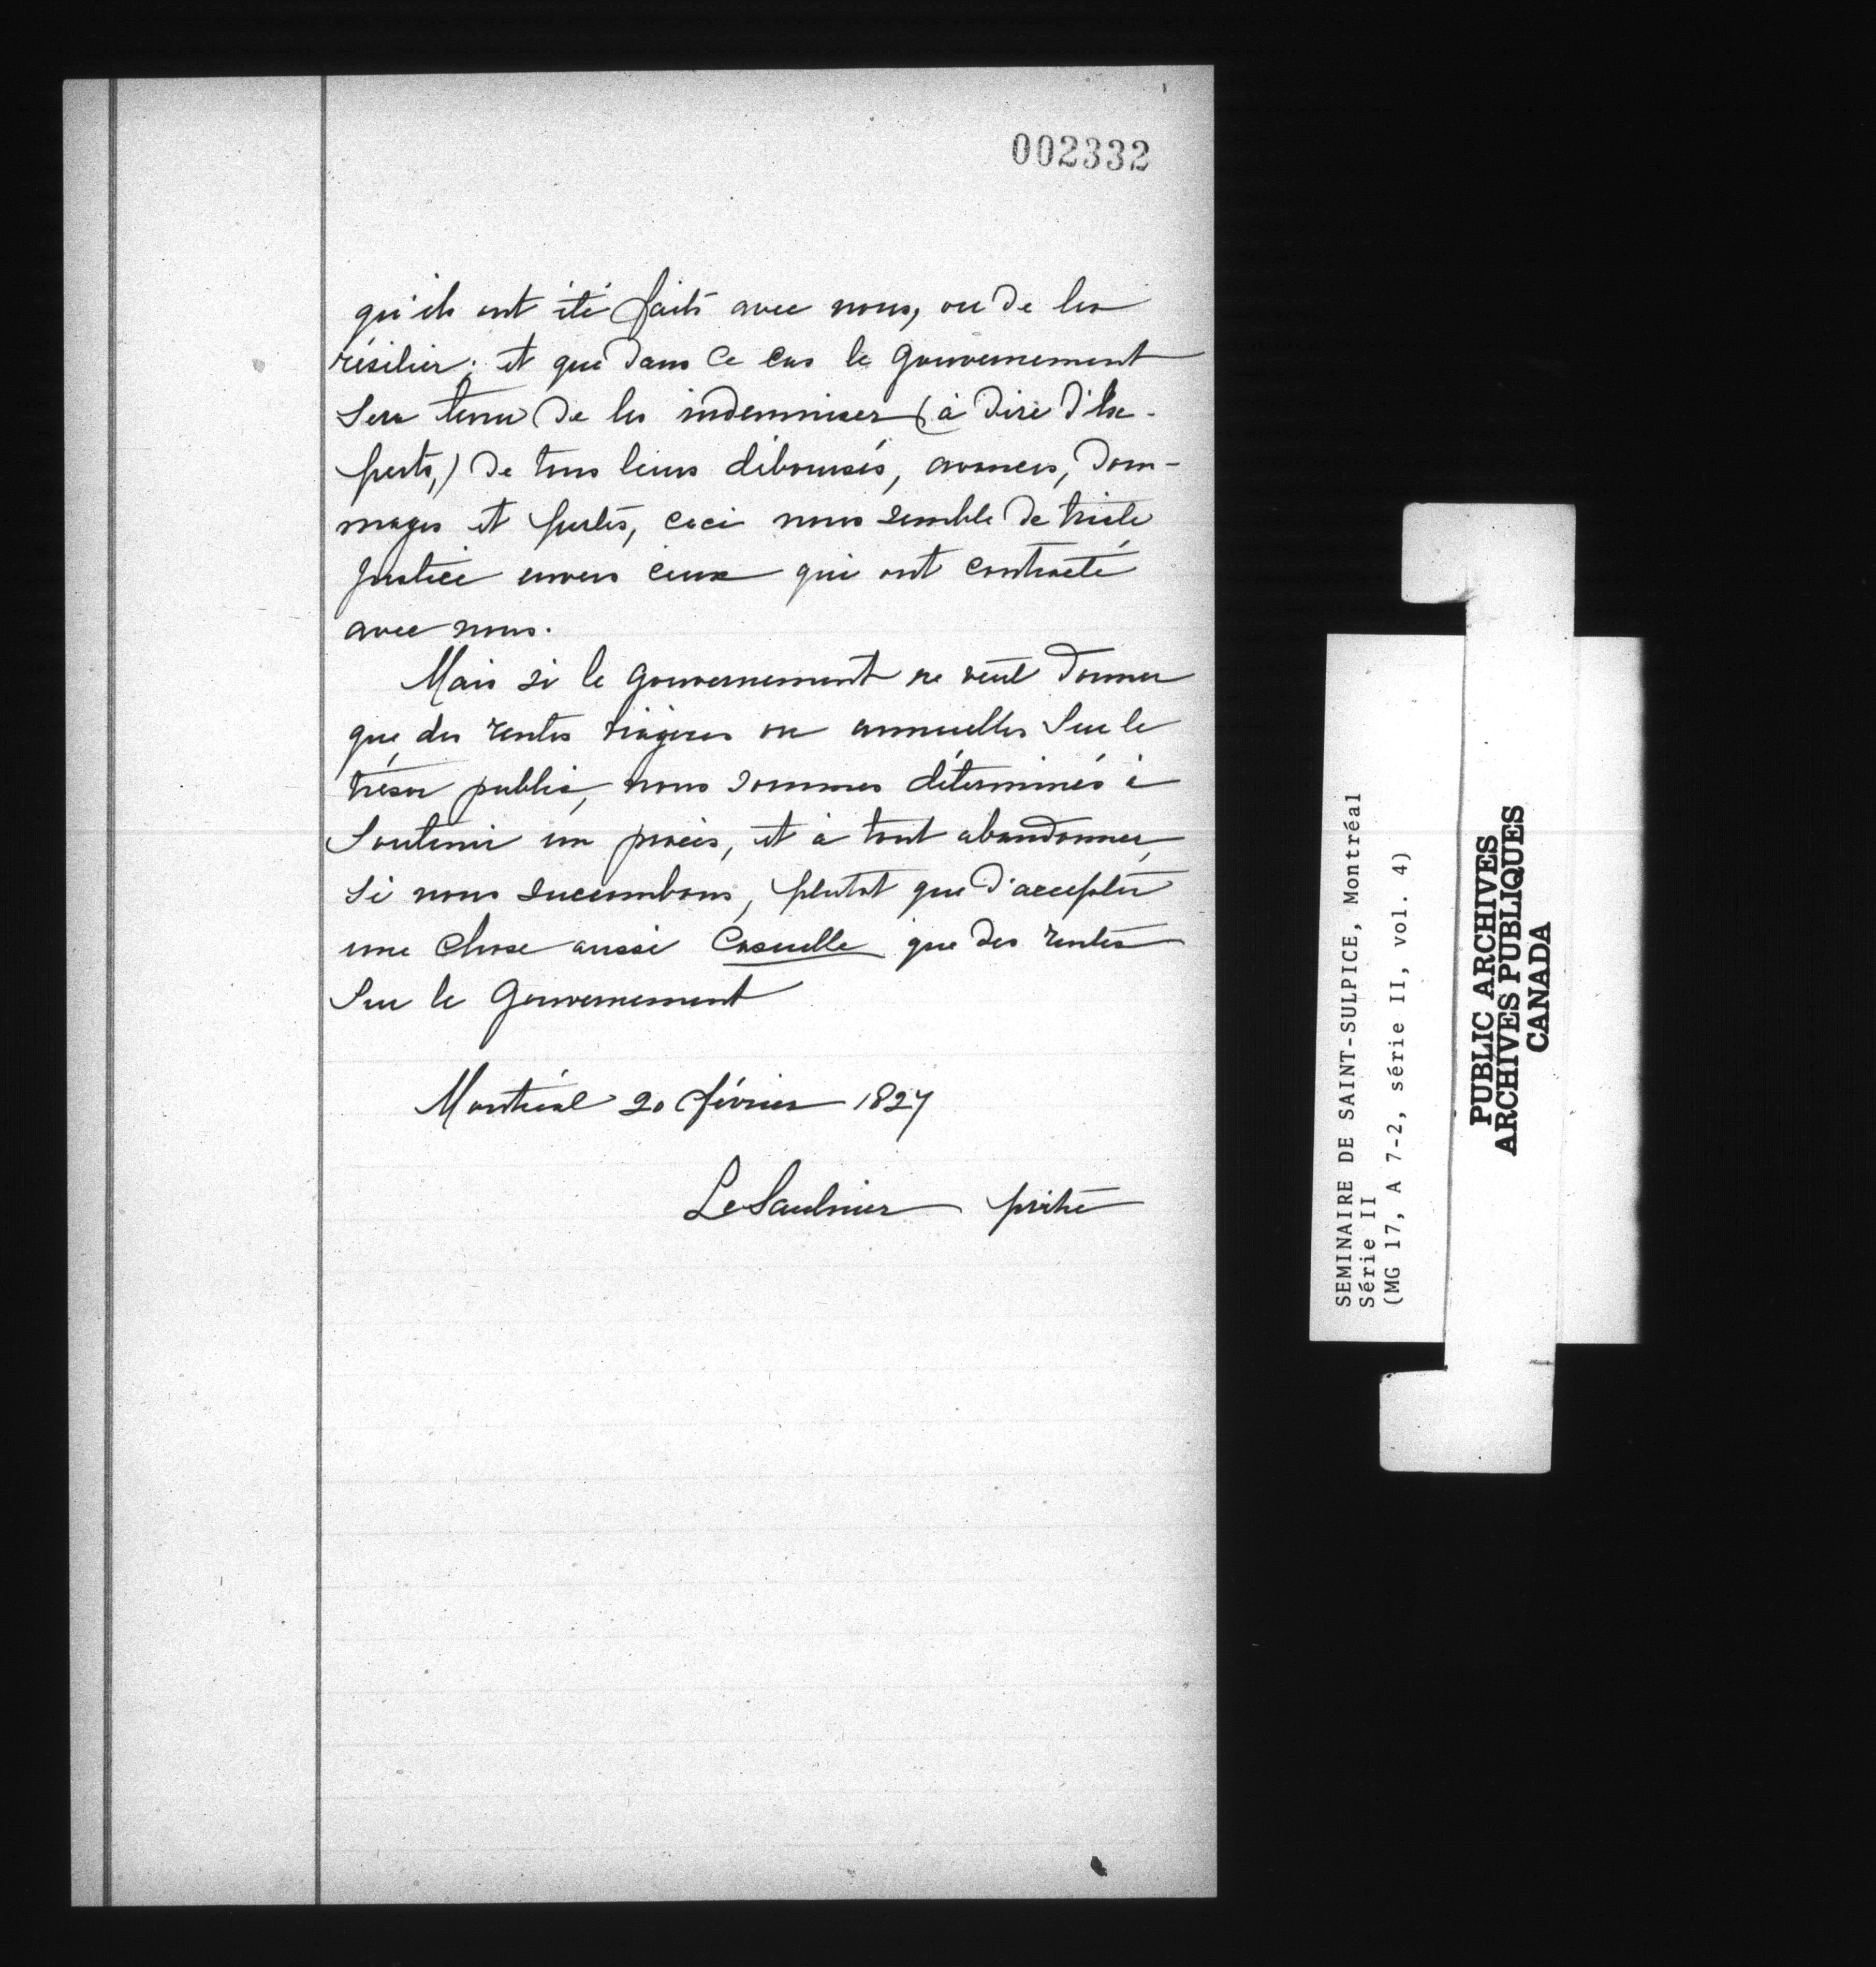 002332
qu'ils ont été faits avec nous, ou de les
résilier; et que dans ce cas le Gouvernement
Sera tenu de les indemniser (à dire d'Ex-
perts,) de tous leurs déboursés, avances, dom-
mages et pertes, ceci nous semble de triste
Justice envers ceux qui ont contracté
avec nous.
Mais si le Gouvernement ne veut donner
que des rentes viagères ou annuelles Sur le
trésor public, nous sommes déterminés à
Soutenir un procès, et à tout abandonner,
si nous succombons, plutot que d'accepter
une chose aussi Casuelle que des rentes
Sur le Gouvernement
Montréal 20 février 1827
Le Saulnier prêtre
SEMINAIRE DE SAINT-SULPICE, Montréal
Série II
(MG 17, A 7-2, série II, vol. 4)
PUBLIC ARCHIVES
ARCHIVES PUBLIQUES
CANADA